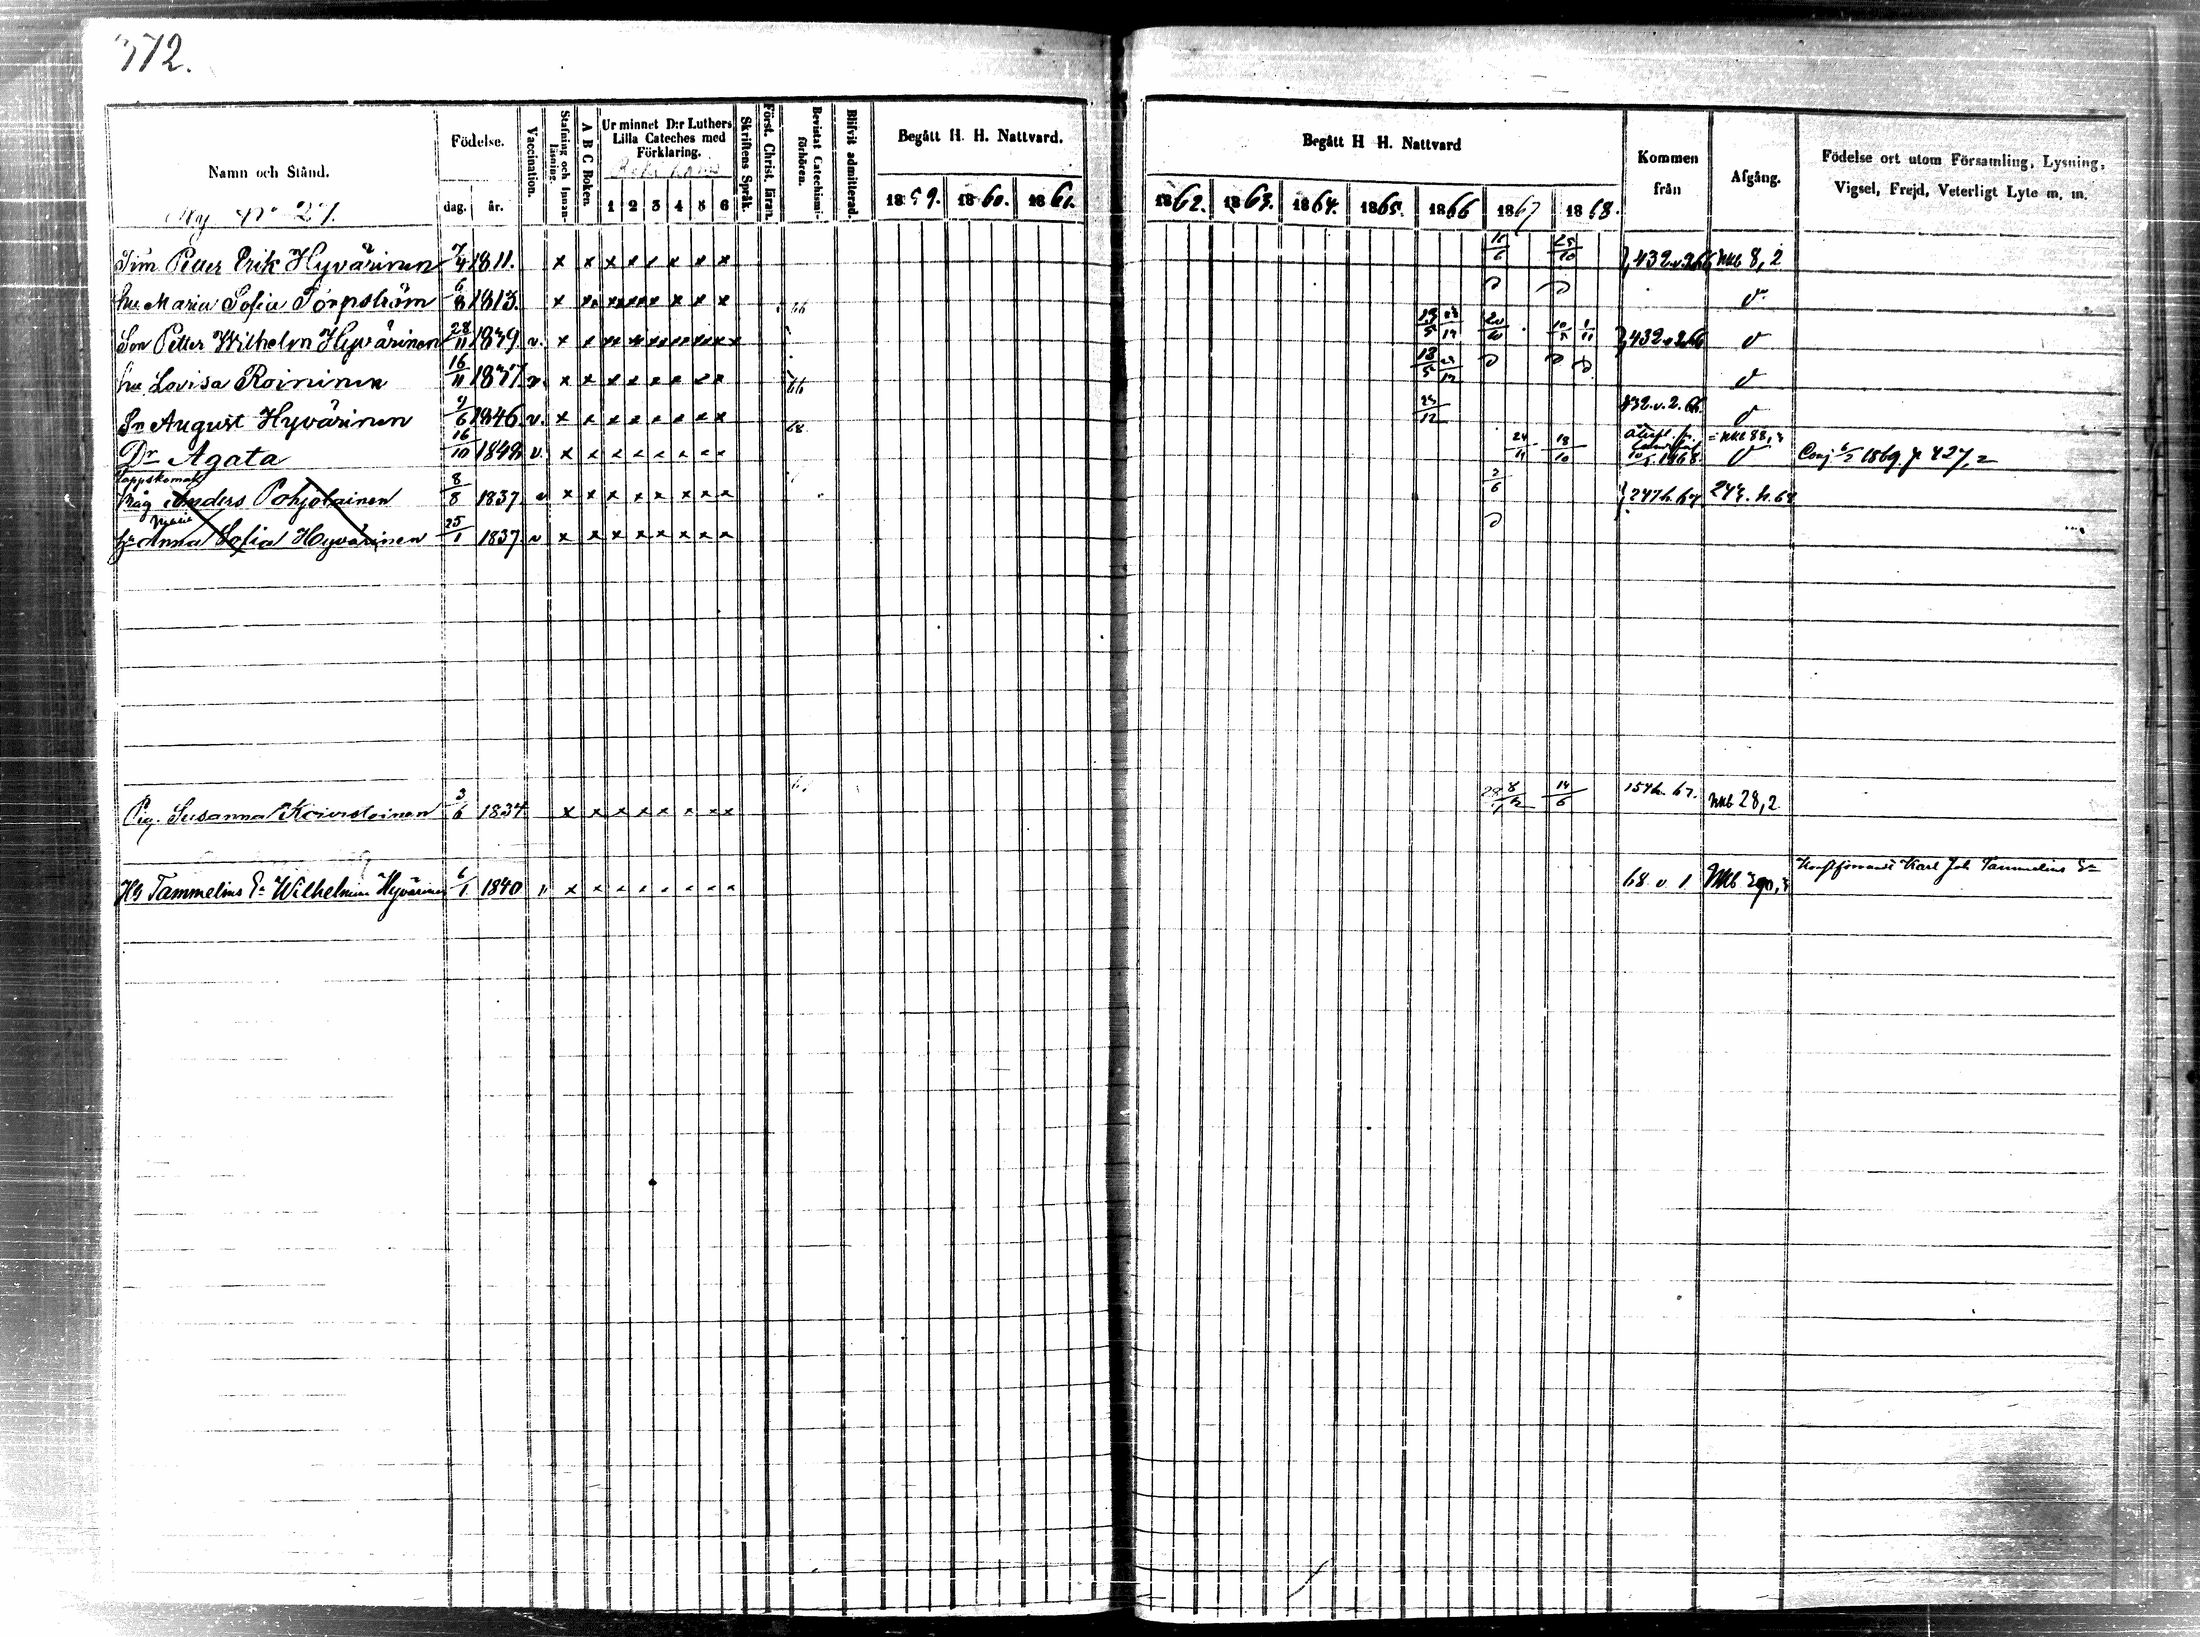 372.
Namn och Stånd.
Ny No 27.
Födelse.
dag. år.
Vaccination.
Stafning och Innan-läsning.
A B C Boken.
Ur minnet D:r Luthers Lilla Cateches med Förklaring.
1 2 3 4 5 6
Skriftens Språk.
Först. Christ. läran.
Bevistat Catechismi-förhören.
Blifvit admitterad.
Begått H. H. Nattvard.
1859. 1860. 1861.
Begått H H. Nattvard
1862. 1863. 1864. 1865. 1866 1867 1868.
Kommen från
Afgång.
Födelse ort utom Församling, Lysning,
Vigsel, Frejd, Veterligt Lyte m. m.
Tim Petter Erik Hyvärinen 7/4 1811. x x x x x x x x 25/10 } 432 v. 2 66 NKb 8,2
hu Maria Sofia Torpström 6/8 1813. x x x x x x x x 66
Son Petter Wilhelm Hyvärinen 28/11 1839 v. x x x x x x x x 13/5 } 432 v. 2 66
hu Lovisa Roininen 16/11 1837 v. x x x x x x x x 66 13/5
Sn August Hyvärinen 9/6 1846 v. x x x x x x x x 68 23/12 432. v. 2. 66.
Dr Agata 16/10 1848 v. x x x x x x x x 24/11 18/10 1868. = NKb 88,3 Conj 1869. p 427,2
Anders Pohjolainen 8/8 1837 v x x x x x x x x 2/6 } 247 h. 67 247. h. 67
hu Anna Sofia Hyvärinen 25/1 1837 v x x x x x x x x
Pig. Susanna 3/6 1834 x x x x x x x x 67 14/6 154 h. 67. NKb 28,2
Tammelins Ea Wilhelmina Hyvärinen 6/1 1840 v x x x x x x x x 68 v 1 Karl Joh Tammelins Ea